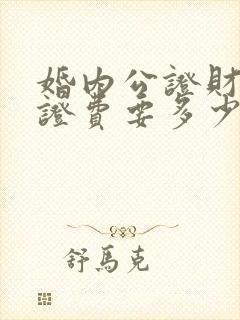 婚內公證財
證費要多少
舒馬克